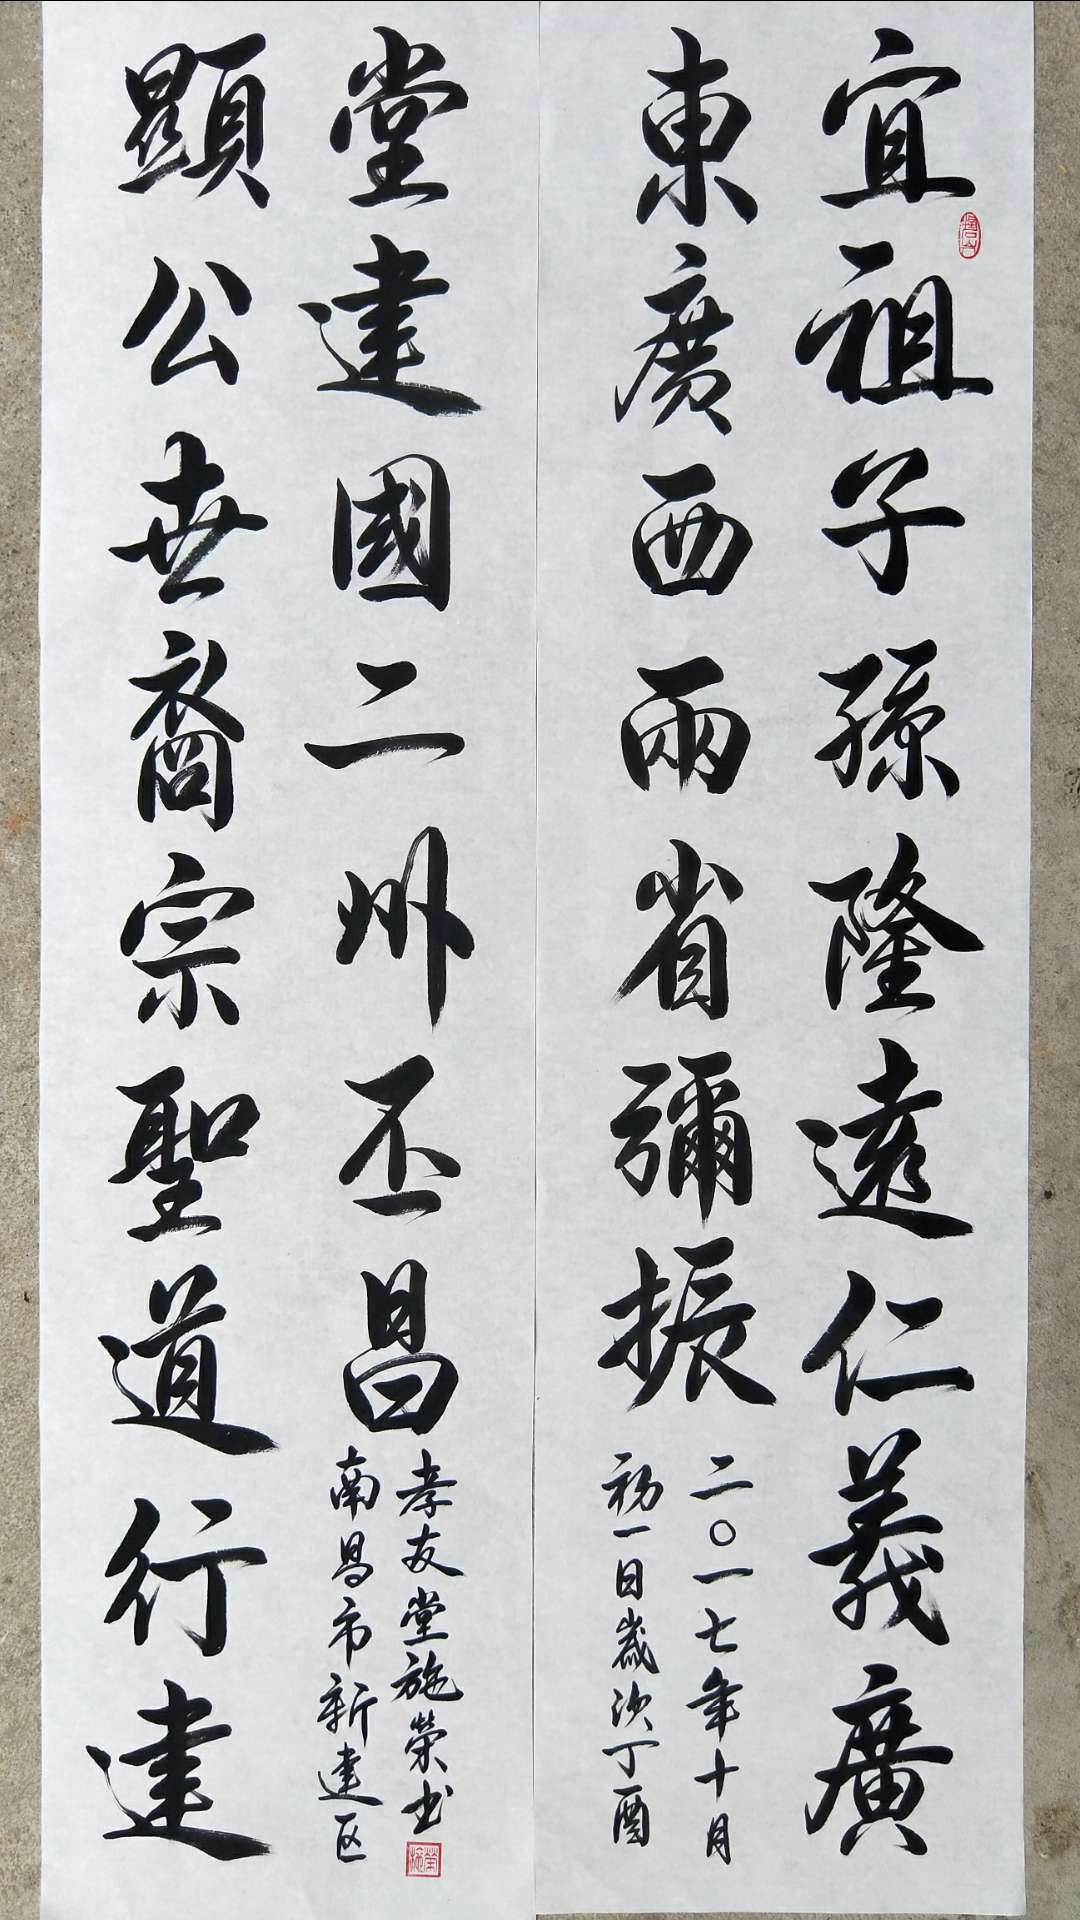 宜祖子孫隆遠仁義廣
東廣西兩省彌振
二〇一七年十月
初一日歲次丁酉
顯公世裔宗聖道行建
堂建國二州丕昌
孝友堂施榮书
南昌市新建区